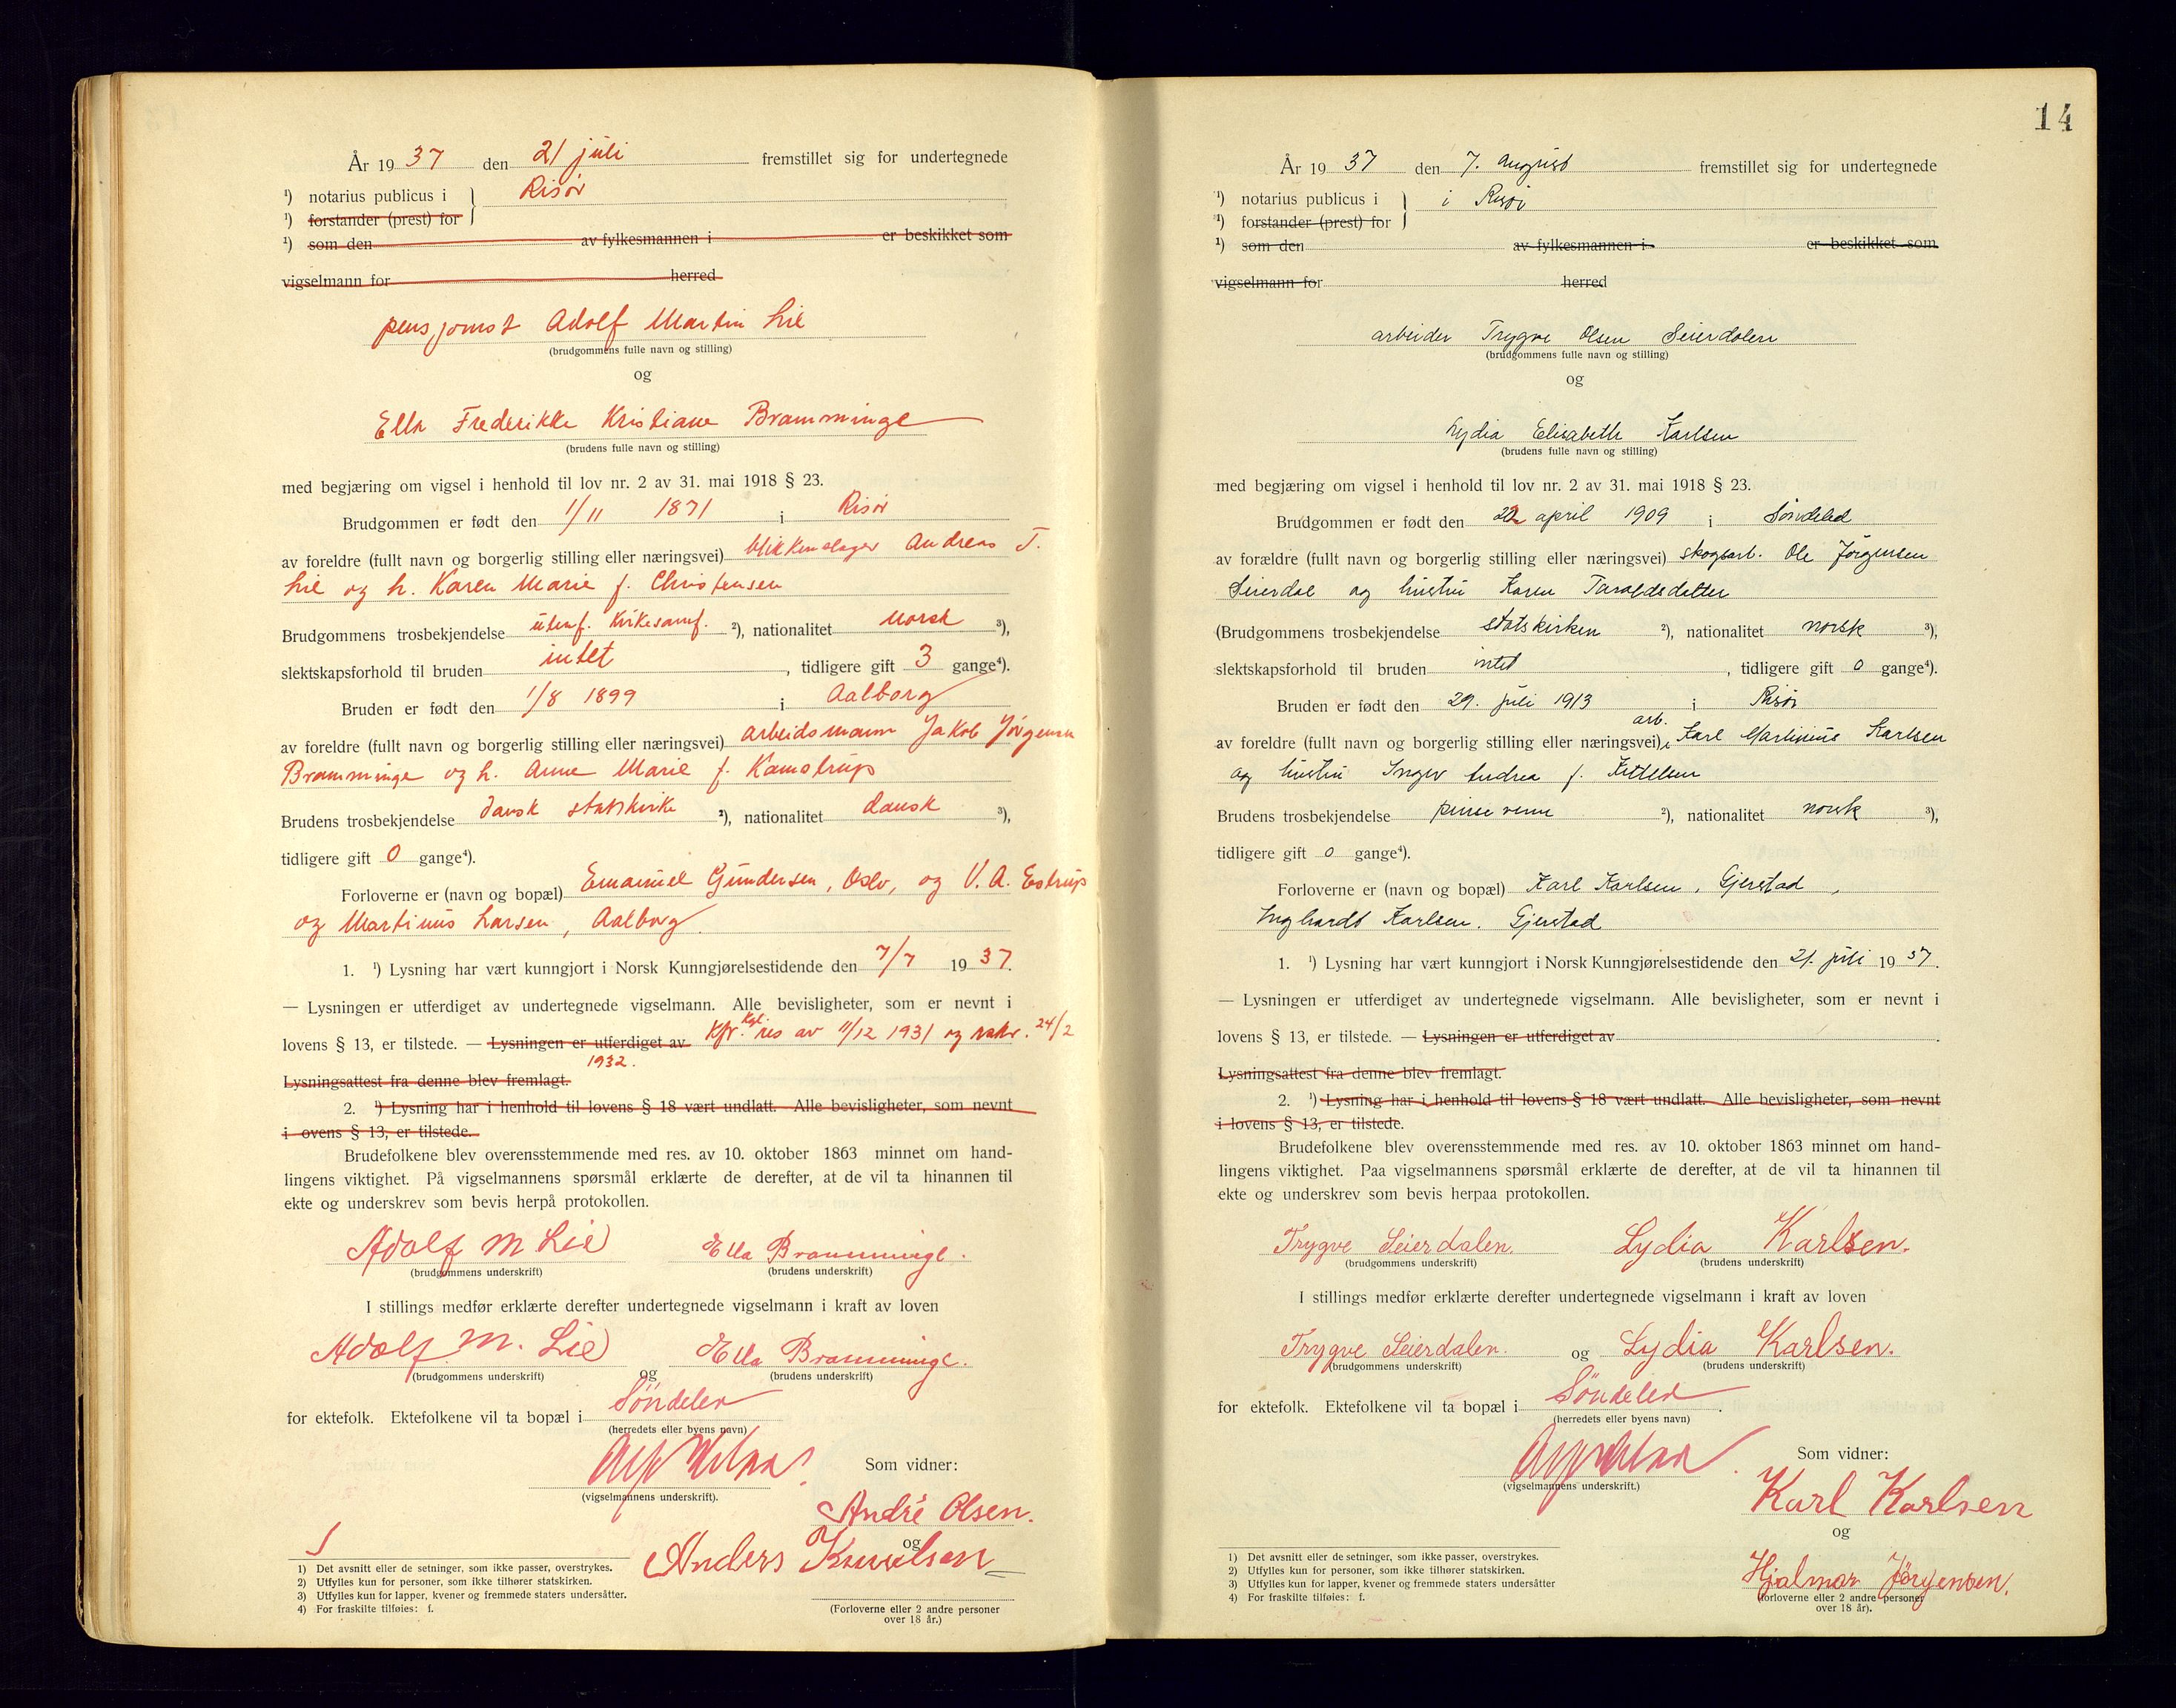 År 1937 den 21 juli fremstillet sig for undertegnede
¹) notarius publicus i } Risör
¹) forstander (prest) for
¹) som den av fylkesmannen i er beskikket som
vigselmann for herred
pensjonist Adolf Martin Lie
(brudgommens fulle navn og stilling)
og
Ella Frederikke Kristiane Bramminge
(brudens fulle navn og stilling)
med begjæring om vigsel i henhold til lov nr. 2 av 31. mai 1918 § 23.
Brudgommen er født den 1/11 1871 i Risör
av foreldre (fullt navn og borgerlig stilling eller næringsvei) blikkenslager Andreas T.
Lie og h. Karen Marie f. Christensen
Brudgommens trosbekjendelse utenf. kirkesamf. ²), nationalitet norsk ³),
slektskapsforhold til bruden intet, tidligere gift 3 gange⁴).
Bruden er født den 1/8 1899 i Aalborg
av foreldre (fullt navn og borgerlig stilling eller næringsvei) arbeidsmann Jakob Jörgensen
Bramminge og h. Anne Marie f. Kamstrup
Brudens trosbekjendelse dansk statskirke ²), nationalitet dansk ³),
tidligere gift 0 gange⁴).
Forloverne er (navn og bopæl) Emanuel Gundersen, Oslo, og V. A. Estrup
og Martinus Larsen, Aalborg.
1. ¹) Lysning har vært kunngjort i Norsk Kunngjørelsestidende den 7/7 1937.
— Lysningen er utferdiget av undertegnede vigselmann. Alle bevisligheter, som er nevnt i
lovens § 13, er tilstede. — Lysningen er utferdiget av Kfr. Kgl. res av 11/12 1931 og 24/2
1932.
Lysningsattest fra denne blev fremlagt.
2. ¹) Lysning har i henhold til lovens § 18 vært undlatt. Alle bevisligheter, som nevnt
i ovens § 13, er tilstede.
Brudefolkene blev overensstemmende med res. av 10. oktober 1863 minnet om hand-
lingens viktighet. På vigselmannens spørsmål erklærte de derefter, at de vil ta hinannen til
ekte og underskrev som bevis herpå protokollen.
Adolf M Lie Ella Bramminge.
(brudgommens underskrift) (brudens underskrift)
I stillings medfør erklærte derefter undertegnede vigselmann i kraft av loven
Adolf M. Lie og Ella Bramminge.
(brudgommens underskrift) (brudens underskrift)
for ektefolk. Ektefolkene vil ta bopæl i Söndeled
(herredets eller byens navn)
Som vidner:
(vigselmannens underskrift).
André Olsen.
og
Anders Knudsen
1) Det avsnitt eller de setninger, som ikke passer, overstrykes.
2) Utfylles kun for personer, som ikke tilhører statskirken.
3) Utfylles kun for lapper, kvener og fremmede staters undersåtter.
4) For fraskilte tilføies: f.
(Forloverne eller 2 andre personer
over 18 år.)
14
År 1937 den 7. august fremstillet sig for undertegnede
¹) notarius publicus i } i Risör
¹) forstander (prest) for
¹) som den av fylkesmannen i er beskikket som
vigselmann for herred
arbeider Trygve Olsen Seierdalen
(brudgommens fulle navn og stilling)
og
Lydia Elisabeth Karlsen
(brudens fulle navn og stilling)
med begjæring om vigsel i henhold til lov nr. 2 av 31. mai 1918 § 23.
Brudgommen er født den 22 april 1909 i Söndeled
av forældre (fullt navn og borgerlig stilling eller næringsvei) skogsarb. Ole Jörgensen
Seierdal og hustru Karen Taraldsdatter
(Brudgommens trosbekjendelse statskirken ²), nationalitet norsk ³),
slektskapsforhold til bruden intet, tidligere gift 0 gange⁴).
Bruden er født den 29. juli 1913 i Risör
av foreldre (fullt navn og borgerlig stilling eller næringsvei) arb. Karl Martinius Karlsen
og hustru Inger Andrea f. Kittelsen
Brudens trosbekjendelse pinsevenn ²), nationalitet norsk ³),
tidligere gift 0 gange⁴).
Forloverne er (navn og bopæl) Karl Karlsen, Gjerstad,
Inghardt Karlsen, Gjerstad
1. ¹) Lysning har vært kunngjort i Norsk Kunngjørelsestidende den 21. juli 1937.
— Lysningen er utferdiget av undertegnede vigselmann. Alle bevisligheter, som er nevnt i
lovens § 13, er tilstede. — Lysningen er utferdiget av .
Lysningsattest fra denne blev fremlagt.
2. ¹) Lysning har i henhold til lovens § 18 vært undlatt. Alle bevisligheter, som nevnt
i lovens § 13, er tilstede.
Brudefolkene blev overensstemmende med res. av 10. oktober 1863 minnet om hand-
lingens viktighet. Paa vigselmannens spørsmål erklærte de derefter, at de vil ta hinannen til
ekte og underskrev som bevis herpaa protokollen.
Trygve Seierdalen. Lydia Karlsen.
(brudgommens underskrift) (brudens underskrift)
I stillings medfør erklærte derefter undertegnede vigselmann i kraft av loven
Trygve Seierdalen. og Lydia Karlsen.
(brudgommens underskrift) (brudens underskrift)
for ektefolk. Ektefolkene vil ta bopæl i Söndeled.
(herredets eller byens navn)
Som vidner:
(vigselmannens underskrift.)
Karl Karlsen
og
Hjalmar Jörgensen.
1) Det avsnitt eller de setninger, som ikke passer, overstrykes.
2) Utfylles kun for personer, som ikke tilhører statskirken.
3) Utfylles kun for lapper, kvener og fremmede staters undersåtter
4) For fraskilte tilføies: f.
(forloverne eller 2 andre personer
over 18 år).